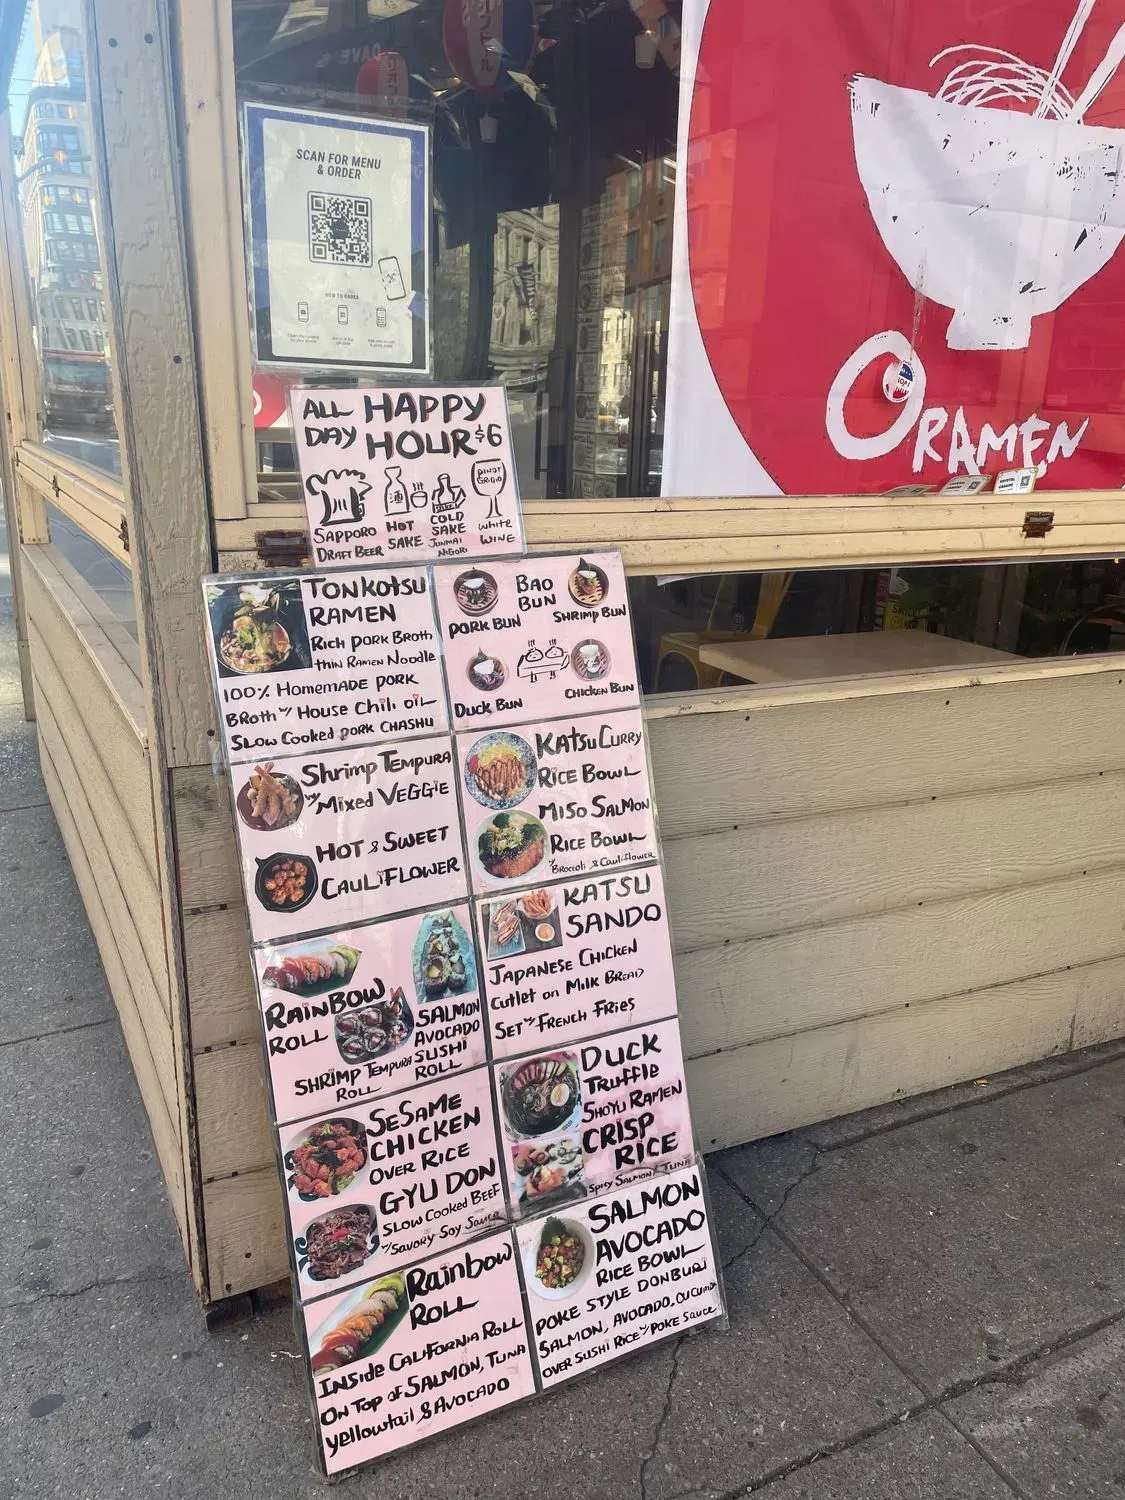 SCAN FOR MENU
& ORDER
HOW TO ORDER
ALL DAY HAPPY HOUR $6
SAPPORO
DRAFT BEER
酒
HOT
SAKE
COLD
SAKE
JUNMAI
NIGORI
PINOT
GRIGIO
white
WINE
ORAMEN
TONKOTSU
RAMEN
RICH PORK BROTH
THIN RAMEN NOODLE
100% HOMEMADE PORK
BROTH W/ HOUSE CHILI OIL
SLOW COOKED PORK CHASHU
BAO
BUN
PORK BUN
SHRIMP BUN
DUCK BUN
CHICKEN BUN
SHRIMP TEMPURA
W/ MIXED VEGGIE
HOT & SWEET
CAULIFLOWER
KATSU CURRY
RICE BOWL
MISO SALMON
RICE BOWL
W/ BROCCOLI & CAULIFLOWER
RAINBOW
ROLL
SHRIMP TEMPURA
ROLL
SALMON
AVOCADO
SUSHI
ROLL
KATSU
SANDO
JAPANESE CHICKEN
CUTLET ON MILK BREAD
SET W/ FRENCH FRIES
SESAME
CHICKEN
OVER RICE
GYU DON
SLOW COOKED BEEF
W/ SAVORY SOY SAUCE
DUCK
TRUFFLE
SHOYU RAMEN
CRISP
RICE
SPICY SALMON/TUNA
Rainbow
ROLL
INSIDE CALIFORNIA ROLL
ON TOP OF SALMON, TUNA
yellowtail & AVOCADO
SALMON
AVOCADO
RICE BOWL
POKE STYLE DONBURI
SALMON, AVOCADO, CUCUMBER
OVER SUSHI RICE W/ POKE SAUCE